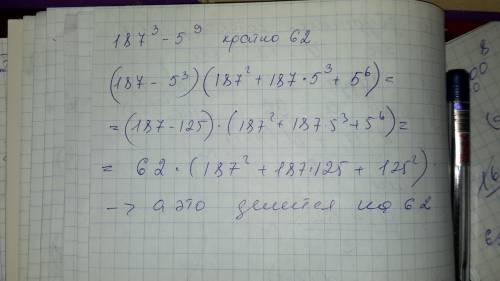 187³ - 5⁹ кратно 62
(187 - 5³)(187² + 187·5³ + 5⁶) =
= (187 - 125)·(187² + 187 5³ + 5⁶) =
= 62·(187² + 187·125 + 125²)
-> а это делится на 62